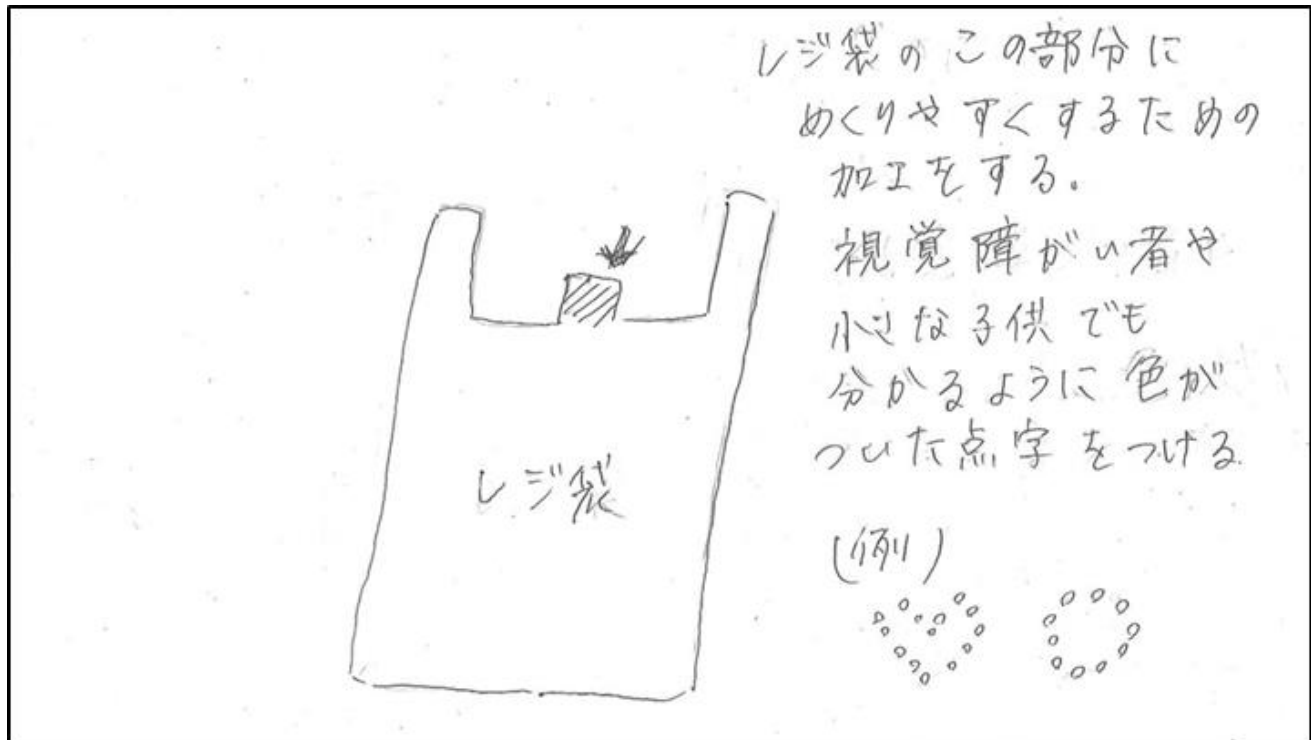 レジ袋のこの部分に
めくりやすくするための
加工をする。
視覚障がい者や
小さな子供でも
分かるように色が
ついた点字をつける
レジ袋
(例)